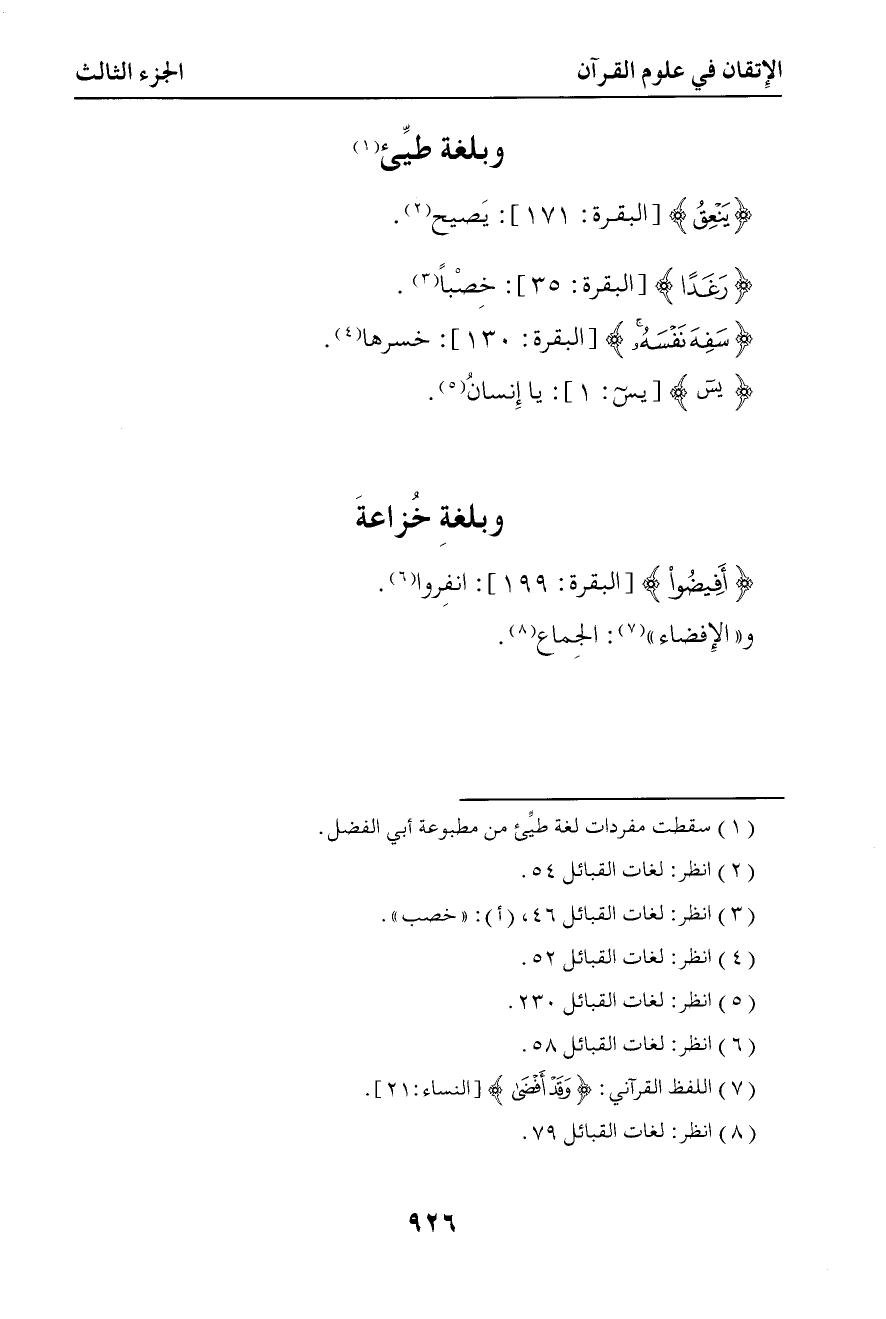 الإتقان في علوم القرآن الجزء الثالث
وبلغة طيِّئ(١)
﴿ يَنْعِقُ ﴾ [ البقرة : ١٧١ ] : يَصيح(٢) .
﴿ رَغَدًا ﴾ [ البقرة : ٣٥ ] : خِصْباً(٣) .
﴿ سَفِهَ نَفْسَهُۥۚ ﴾ [ البقرة : ١٣٠ ] : خسرها(٤) .
﴿ يسٓ ﴾ [ يسٓ : ١ ] : يا إِنسانُ(٥) .
وبلغةِ خُزاعةَ
﴿ أَفِيضُوا۟ ﴾ [ البقرة : ١٩٩ ] : انفِروا(٦) .
و« الإِفضاء »(٧) : الجِماع(٨) .
( ١ ) سقطت مفردات لغة طيِّئ من مطبوعة أبي الفضل .
( ٢ ) انظر : لغات القبائل ٥٤ .
( ٣ ) انظر : لغات القبائل ٤٦ ، ( أ ) : « خصب » .
( ٤ ) انظر : لغات القبائل ٥٢ .
( ٥ ) انظر : لغات القبائل ٢٣٠ .
( ٦ ) انظر : لغات القبائل ٥٨ .
( ٧ ) اللفظ القرآني : ﴿ وَقَدْ أَفْضَىٰ ﴾ [ النساء : ٢١ ] .
( ٨ ) انظر : لغات القبائل ٧٩ .
٩٢٦